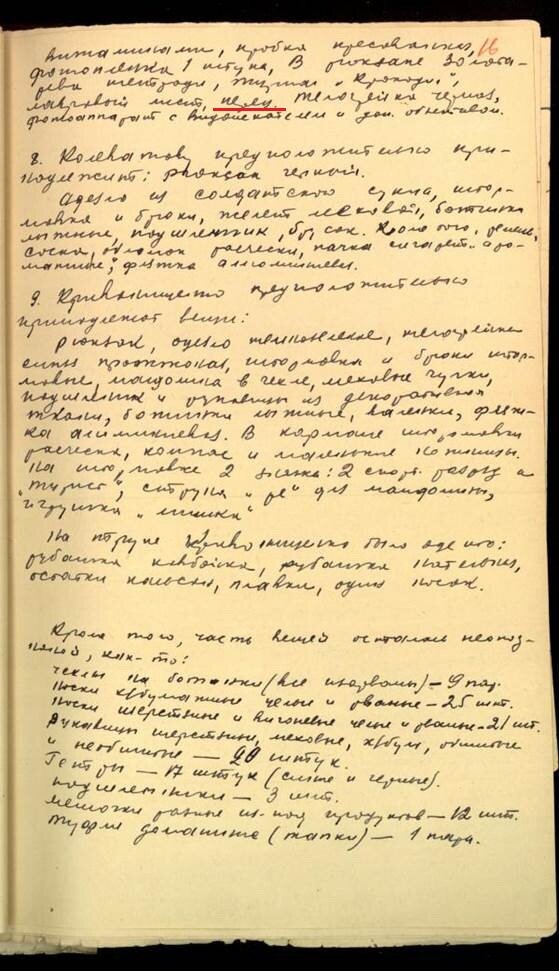 витаминами, пробка пресованная, 16
фотопленка 1 штука, В рюкзаке Золота-
рева тетради, журнал „Крокодил",
лавровый лист, телогрейка черная,
фотоаппарат с видоискателем и доп. объективом.
8. Колеватову предположительно при-
надлежит: рюкзак черный.
Одеяло из солдатского сукна, штор-
мовка и брюки, жилет меховой, ботинки
лыжные, подшлемник, брусок. Кроме того, ремень,
соска, обломок расчески, пачка сигарет „аро-
матные", фляжка алюминиевая.
9. Кривонищенко предположительно
принадлежат вещи:
Рюкзак, одеяло телогрейка
штормовка и брюки штор-
мовые, мандолина в чехле, меховые чулки,
подшлемник и рукавицы из декоративной
ткани, ботинки лыжные, валенки, фляж-
ка алюминиевая. В кармане штормовки
расческа, компас и маленькие ножницы.
На штормовке 2 значка: 2 спорт. разряд и
„турист", струна „ре" для мандолины,
игрушка „мишка"
На трупе Кривонищенко было одето:
рубашка ковбойка, рубашка нательная,
остатки кальсон, плавки, один носок.
Кроме того, часть вещей осталась неопоз-
наной, как-то:
чехлы на ботинки (все изорваны) – 9 пар.
Носки х/бумажные целые и рваные – 25 шт.
Носки шерстяные и вигоневые целые и рваные – 21 шт.
Рукавицы шерстяные, меховые, х/бум, обшитые
и необшитые — 20 штук.
Гетры — 17 штук (синие и черные).
подшлемники – 3 шт.
мешочки разные из-под продуктов – 12 шт.
туфли домашние (тапки) – 1 пара.